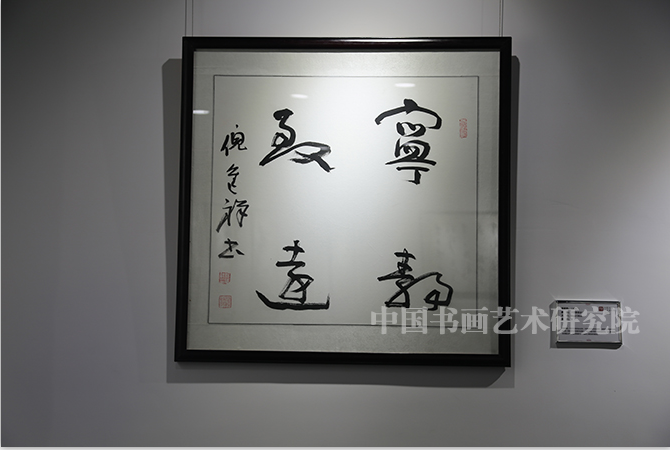 寧靜
致遠
倪 祥书
中国书画艺术研究院